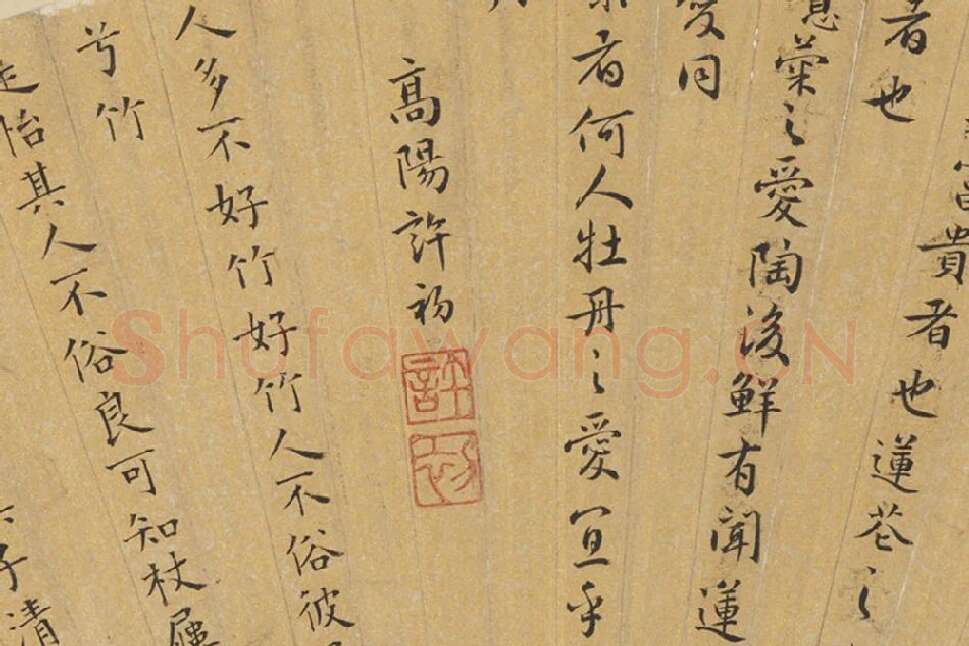 富貴者也蓮花之
者也
噫菊之愛陶後鮮有聞蓮
愛同
者何人牡丹之愛宜乎
高陽許初
許初
人多不好竹好竹人不俗彼
兮竹
怡其人不俗良可知杖屨
子清
Shufawang.CN